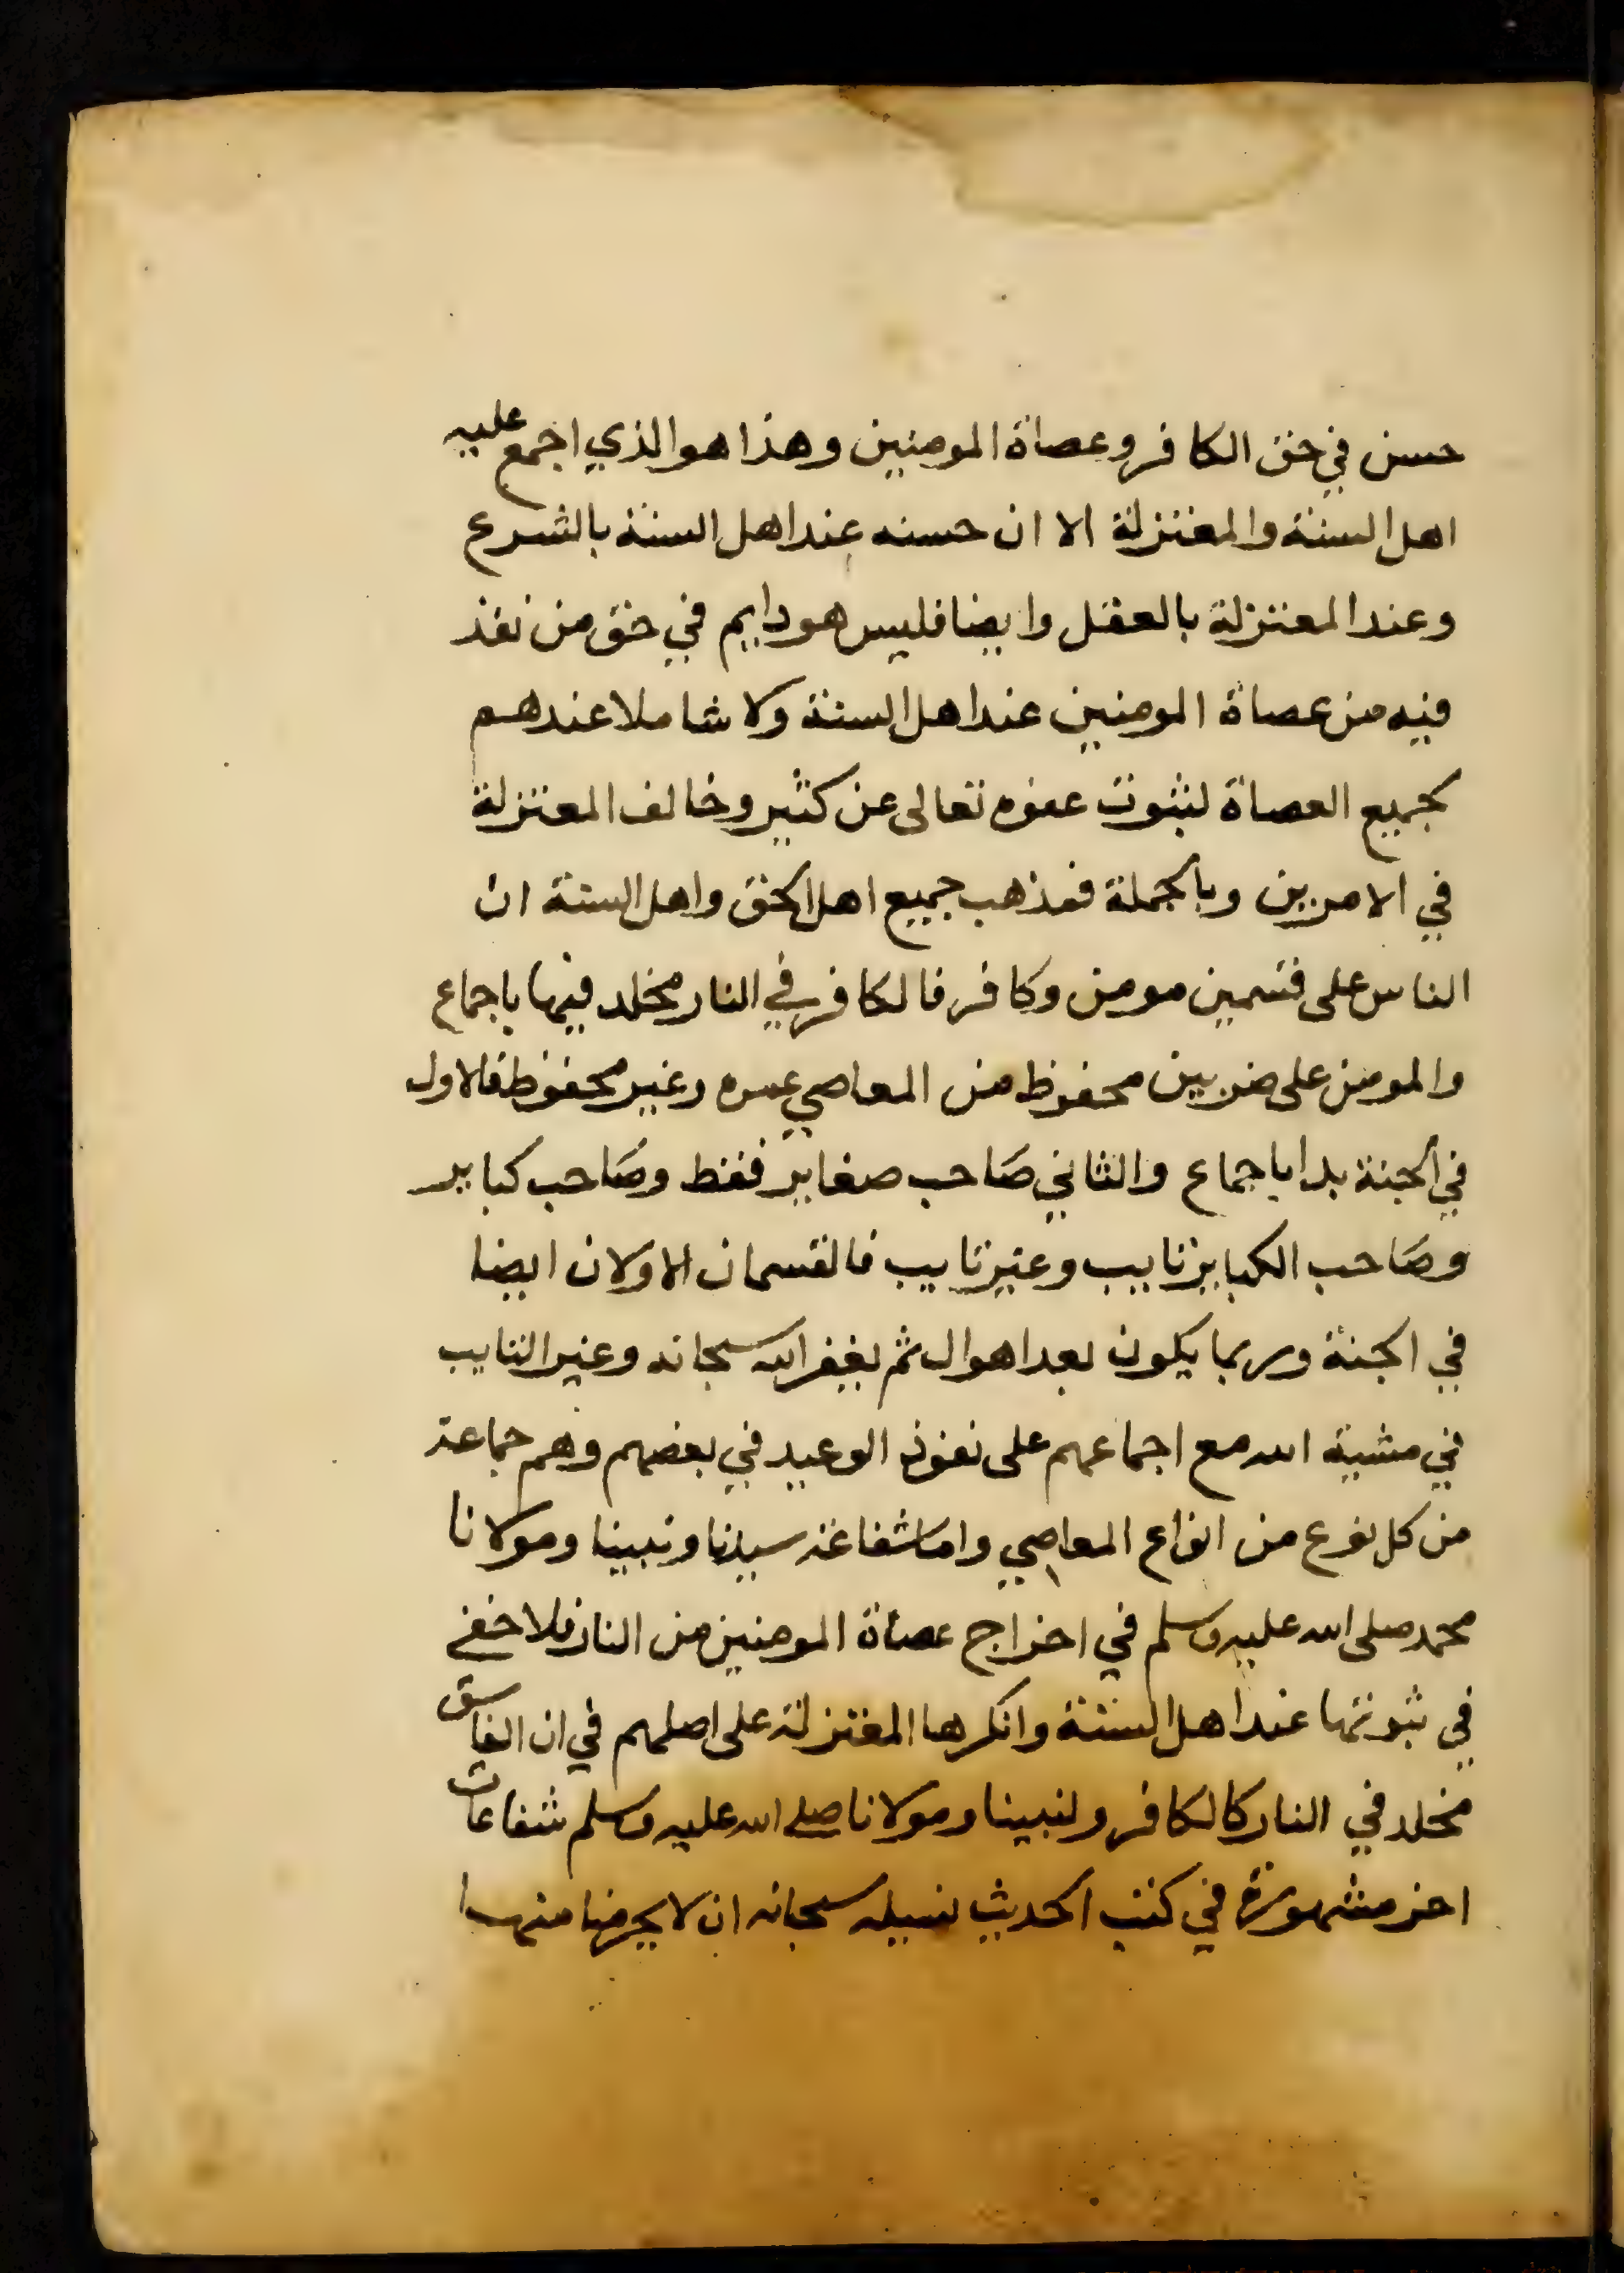 حسن في حق الكافر وعصاة المومنين وهذا هو الذي اجمع عليه
اهل السنة والمعتزلة الا ان حسنه عند اهل السنة بالشرع
وعند المعتزلة بالعقل وايضا فليس هو دايم في حق من نفذ
فيه من عصاة المومنين عند اهل السنة ولا شاملا عندهم
لجميع العصاة لثبوت عفوه تعالى عن كثير وخالف المعتزلة
في الامرين وبالجملة فمذهب جميع اهل الحق واهل السنة ان
الناس على قسمين مومن وكافر فالكافر في النار مخلد فيها باجماع
والمومن على ضربين محفوظ من المعاصي عمره وغير محفوظ فالاول
في الجنة بدا باجماع والثاني صاحب صغاير فقط وصاحب كباير
وصاحب الكباير تايب وغير تايب فالقسمان الاولان ايضا
في الجنة وربما يكون بعد اهوال ثم يغفر الله سبحانه وغير التايب
في مشية الله مع اجماعهم على نفوذ الوعيد في بعضهم وهم جماعة
من كل نوع من انواع المعاصي واما شفاعة سيدنا ونبينا ومولانا
محمد صلى الله عليه وسلم في اخراج عصاة المومنين من النار فلا خفي
في ثبوتها عند اهل السنة وانكرها المعتزلة على اصلهم في ان الفاسق
مخلد في النار كالكافر ولنبينا ومولانا صلى الله عليه وسلم شفاعات
اخر مشهورة في كتب الحديث نسيله سبحانه ان لا يحرمنا منها